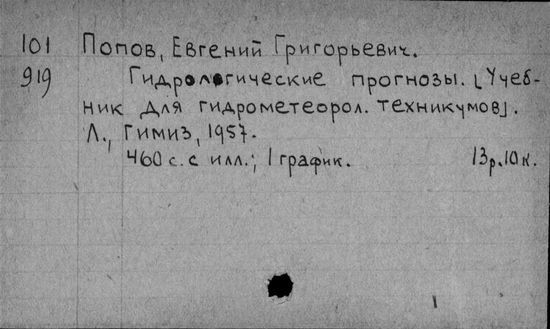 101 Попов, Евгений Григорьевич.
919 Гидрологические прогнозы. [Учеб-
ник для гидрометеорол. техникумов].
Л., Гимиз, 1957.
460 с. с илл.; 1 график. 13 р. 10 к.